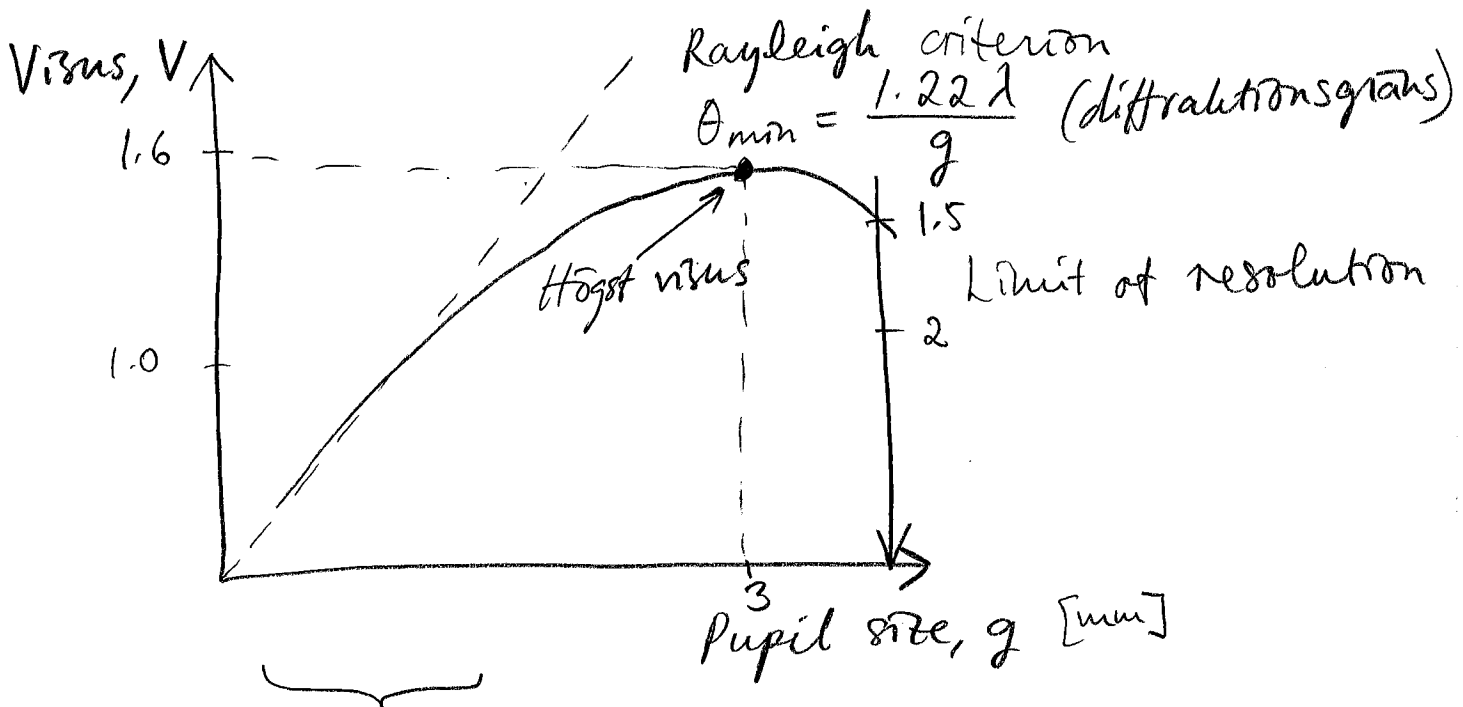 Visus, V
Rayleigh criterion
θmin = 1.22 λ / g (diffraktionsgräns)
1.6
1.5
Högst visus
Limit of resolution
2
1.0
3
Pupil size, g [mm]